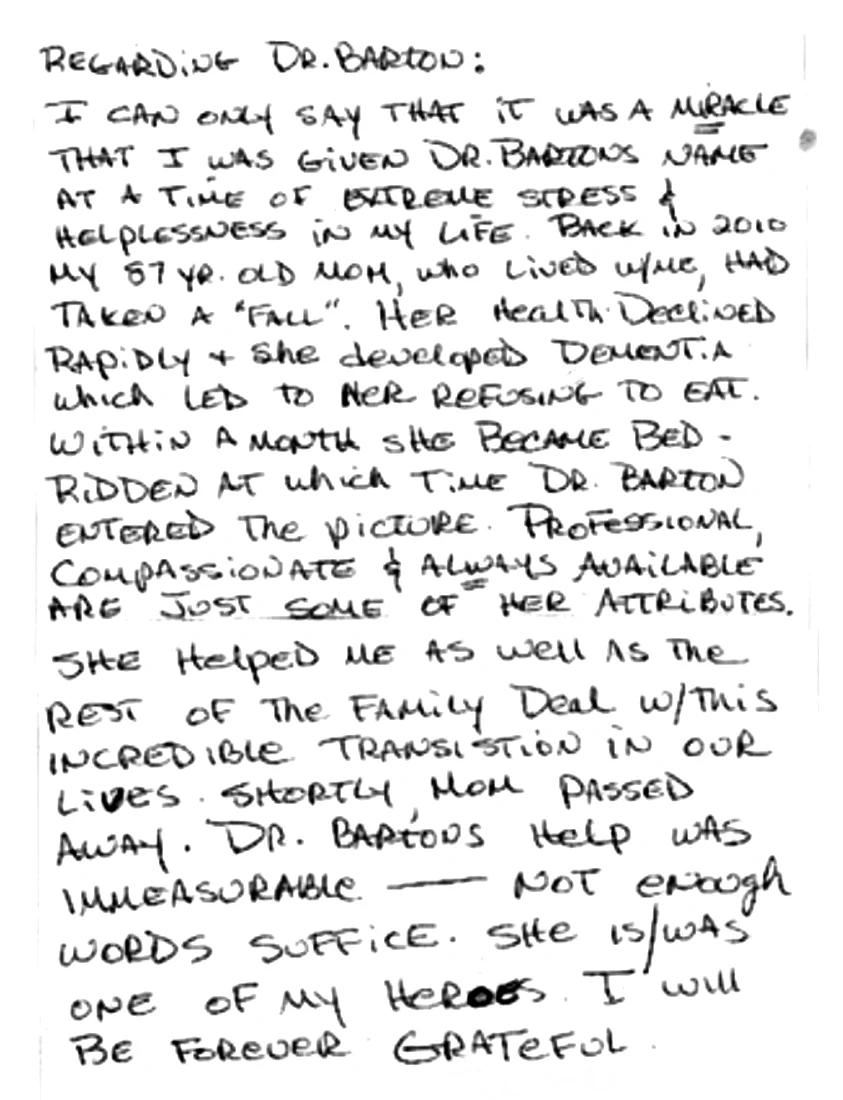 REGARDING DR. BARTON:
I CAN ONLY SAY THAT IT WAS A MIRACLE
THAT I WAS GIVEN DR. BARTONS NAME
AT A TIME OF EXTREME STRESS &
HELPLESSNESS IN MY LIFE. BACK IN 2010
MY 87 YR. OLD MOM, WHO LIVED W/ME, HAD
TAKEN A "FALL". HER HEALTH DECLINED
RAPIDLY + SHE DEVELOPED DEMENTIA
WHICH LED TO HER REFUSING TO EAT.
WITHIN A MONTH SHE BECAME BED-
RIDDEN AT WHICH TIME DR. BARTON
ENTERED THE PICTURE. PROFESSIONAL,
COMPASSIONATE & ALWAYS AVAILABLE
ARE JUST SOME OF HER ATTRIBUTES.
SHE HELPED ME AS WELL AS THE
REST OF THE FAMILY DEAL W/THIS
INCREDIBLE TRANSISTION IN OUR
LIVES. SHORTLY, MOM PASSED
AWAY. DR. BARTONS HELP WAS
IMMEASURABLE — NOT ENOUGH
WORDS SUFFICE. SHE IS/WAS
ONE OF MY HEROES. I WILL
BE FOREVER GRATEFUL.